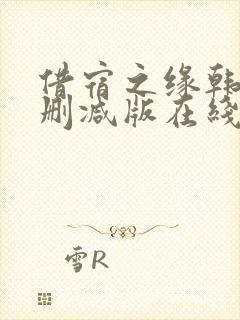 借宿之缘韩
删减版在线
雪R